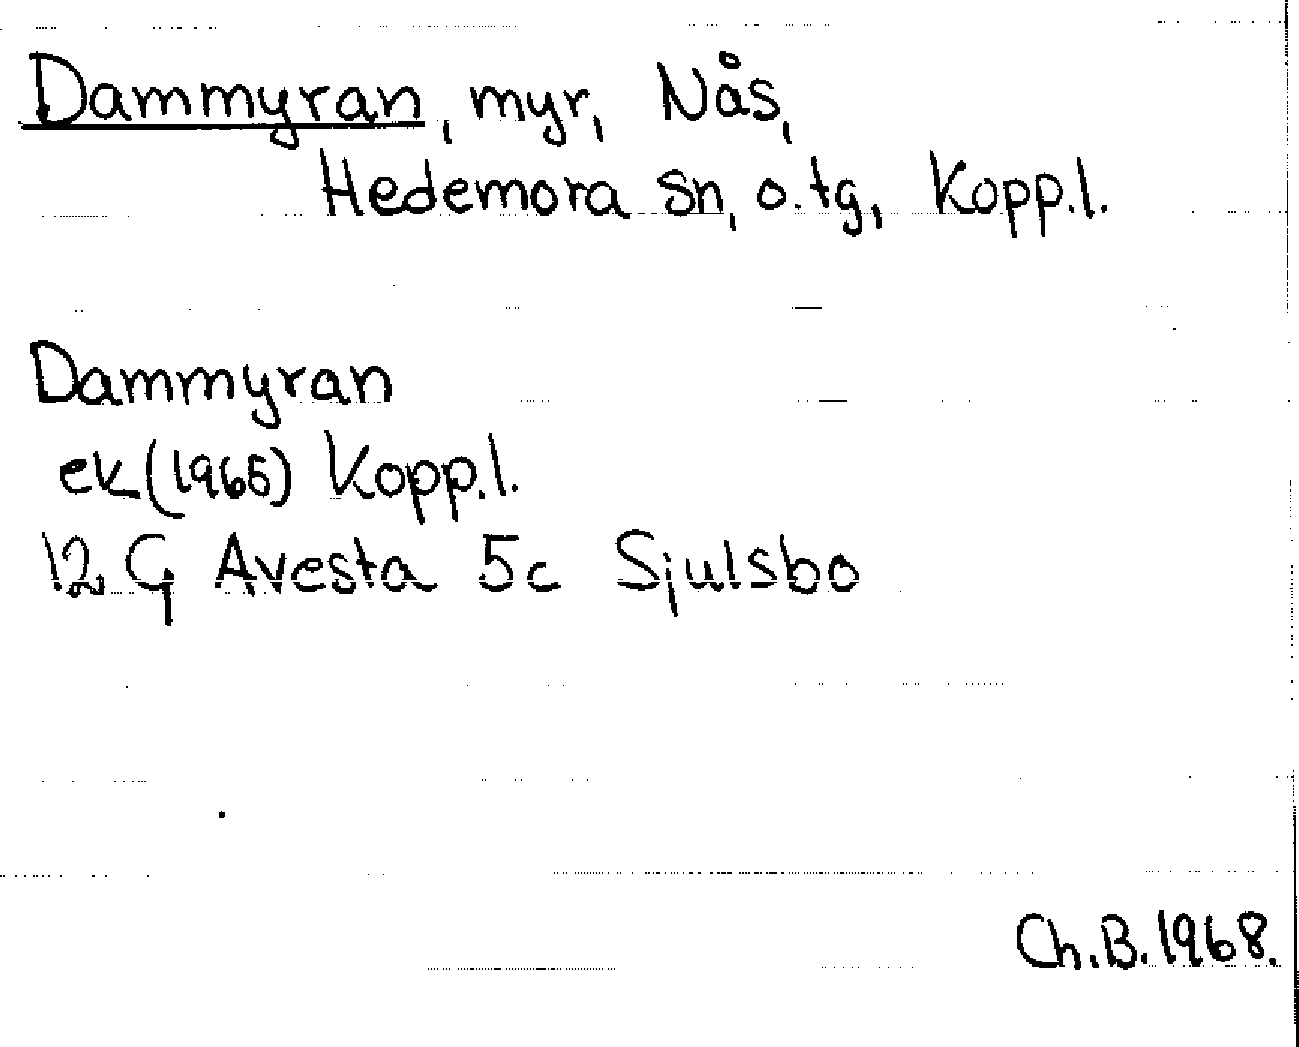 Dammyran, myr, Nås,
Hedemora sn, o. tg, Kopp.l.
Dammyran
ek (1965) Kopp.l.
12 G Avesta 5c Sjulsbo
Ch.B. 1968.